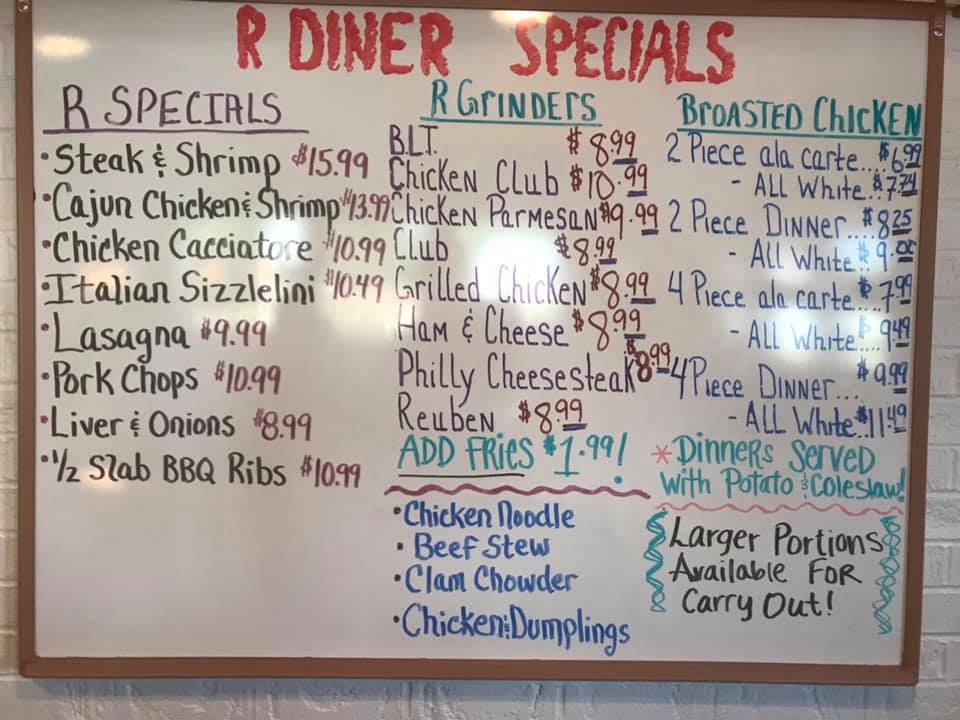 R DINER SPECIALS
R SPECIALS
• Steak & Shrimp $15.99
• Cajun Chicken & Shrimp $13.99
• Chicken Cacciatore $10.99
• Italian Sizzlelini $10.49
• Lasagna $9.99
• Pork Chops $10.99
• Liver & Onions $8.99
• 1/2 Slab BBQ Ribs $10.99
R GRINDERS
B.L.T. $8.99
Chicken Club $10.99
Chicken Parmesan $9.99
Club $8.99
Grilled Chicken $8.99
Ham & Cheese $8.99
Philly Cheesesteak $8.99
Reuben $8.99
ADD FRIES $1.99!
• Chicken Noodle
• Beef Stew
• Clam Chowder
• Chicken & Dumplings
BROASTED CHICKEN
2 Piece ala carte... $6.99
- ALL White.. $7.74
2 Piece Dinner.... $8.25
- ALL White.. $9.00
4 Piece ala carte.... $7.99
- ALL White.... $9.49
4 Piece Dinner... $9.99
- ALL White.. $11.49
* Dinners Served
With Potato & Coleslaw!
Larger Portions
Available FOR
Carry Out!